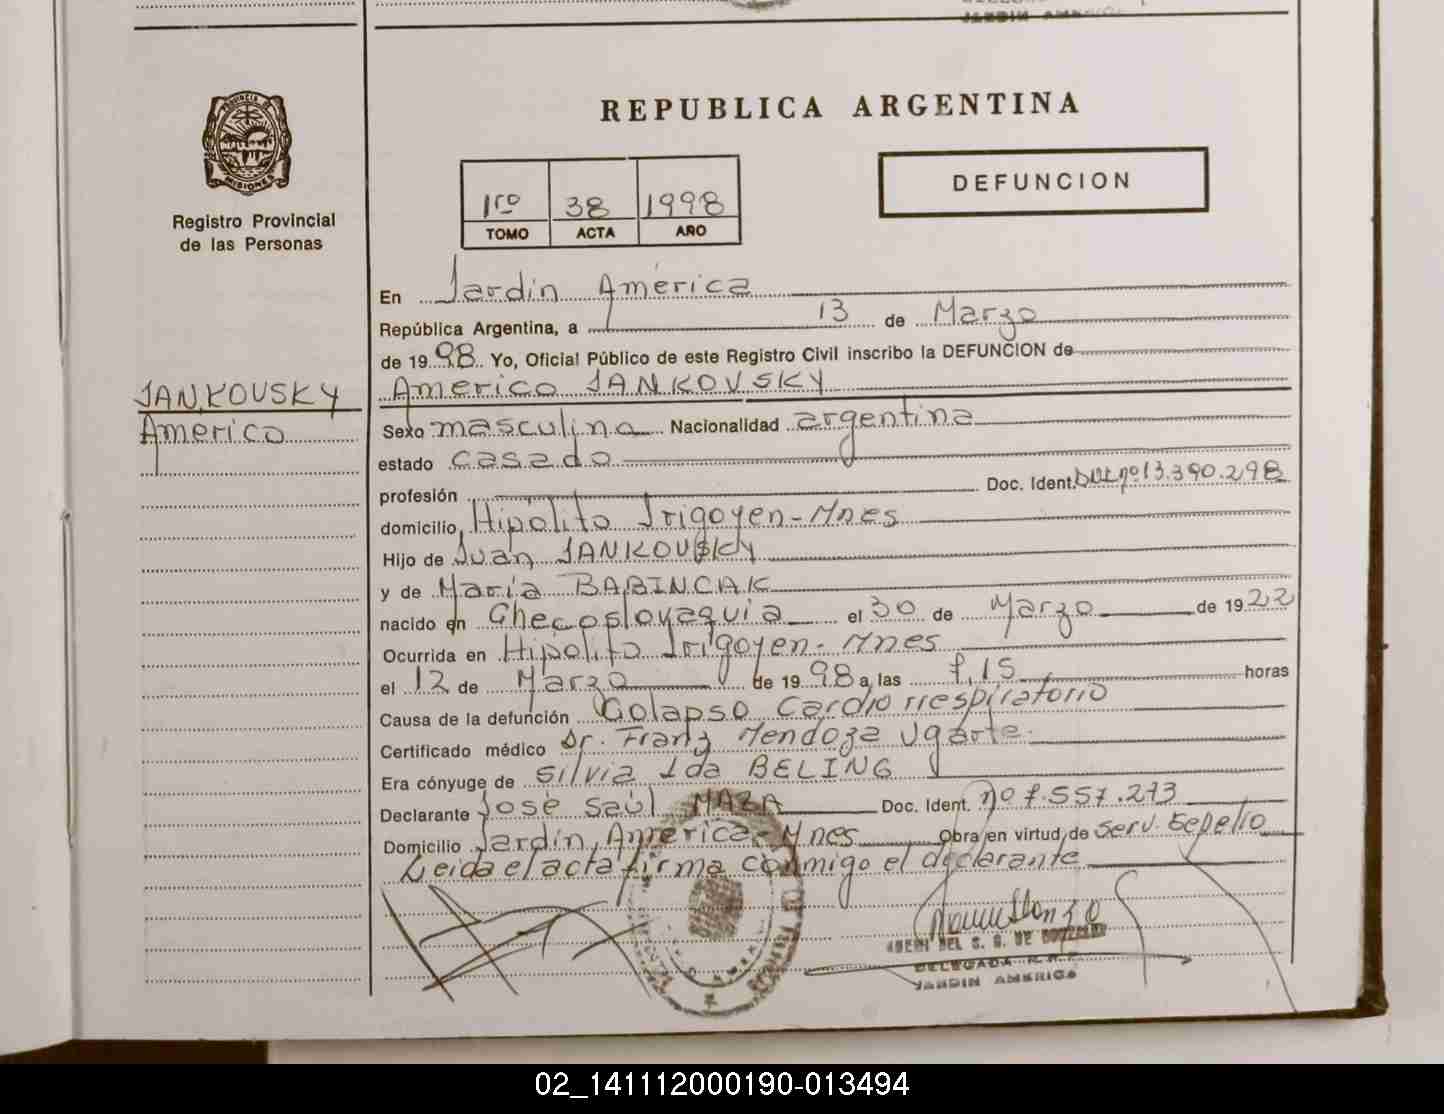 JARDIN AMERICA
PROVINCIA DE
MISIONES
Registro Provincial
de las Personas
JANKOVSKY
Americo
REPUBLICA ARGENTINA
1ro 38 1998
TOMO ACTA AÑO
DEFUNCION
En Jardin América
República Argentina, a 13 de Marzo
de 1998 Yo, Oficial Público de este Registro Civil inscribo la DEFUNCION de
Americo JANKOVSKY
Sexo masculino Nacionalidad argentina
estado casado
profesión Doc. Ident. DNI nº 13.390.298
domicilio Hipólito Irigoyen - Mnes
Hijo de Juan JANKOVSKY
y de María BABINCAK
nacido en Checoslovaquia el 30 de Marzo de 1922
Ocurrida en Hipólito Irigoyen - Mnes
el 12 de Marzo de 1998 a las 7,15 horas
Causa de la defunción Colapso Cardio rrespiratorio
Certificado médico Dr. Franz Mendoza Ugarte
Era cónyuge de Silvia Ida BELING
Declarante José Saúl MAZA Doc. Ident. nº 7.557.273
Domicilio Jardin America - Mnes Obra en virtud de Serv. Sepelio
Leida el acta firma conmigo el declarante
DELEGADA R.P.P.
JARDIN AMERICA
02_141112000190-013494